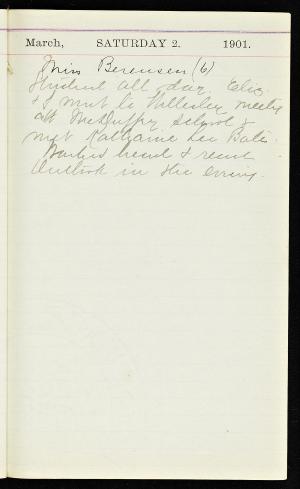 March, SATURDAY 2. 1901.
Miss Berensen (6)
Studied all day. Eliz.
& I went to Wellesley meeting
at McDuffy School &
met Katharine Lee Bates.
head & read
Outlook in the evening.